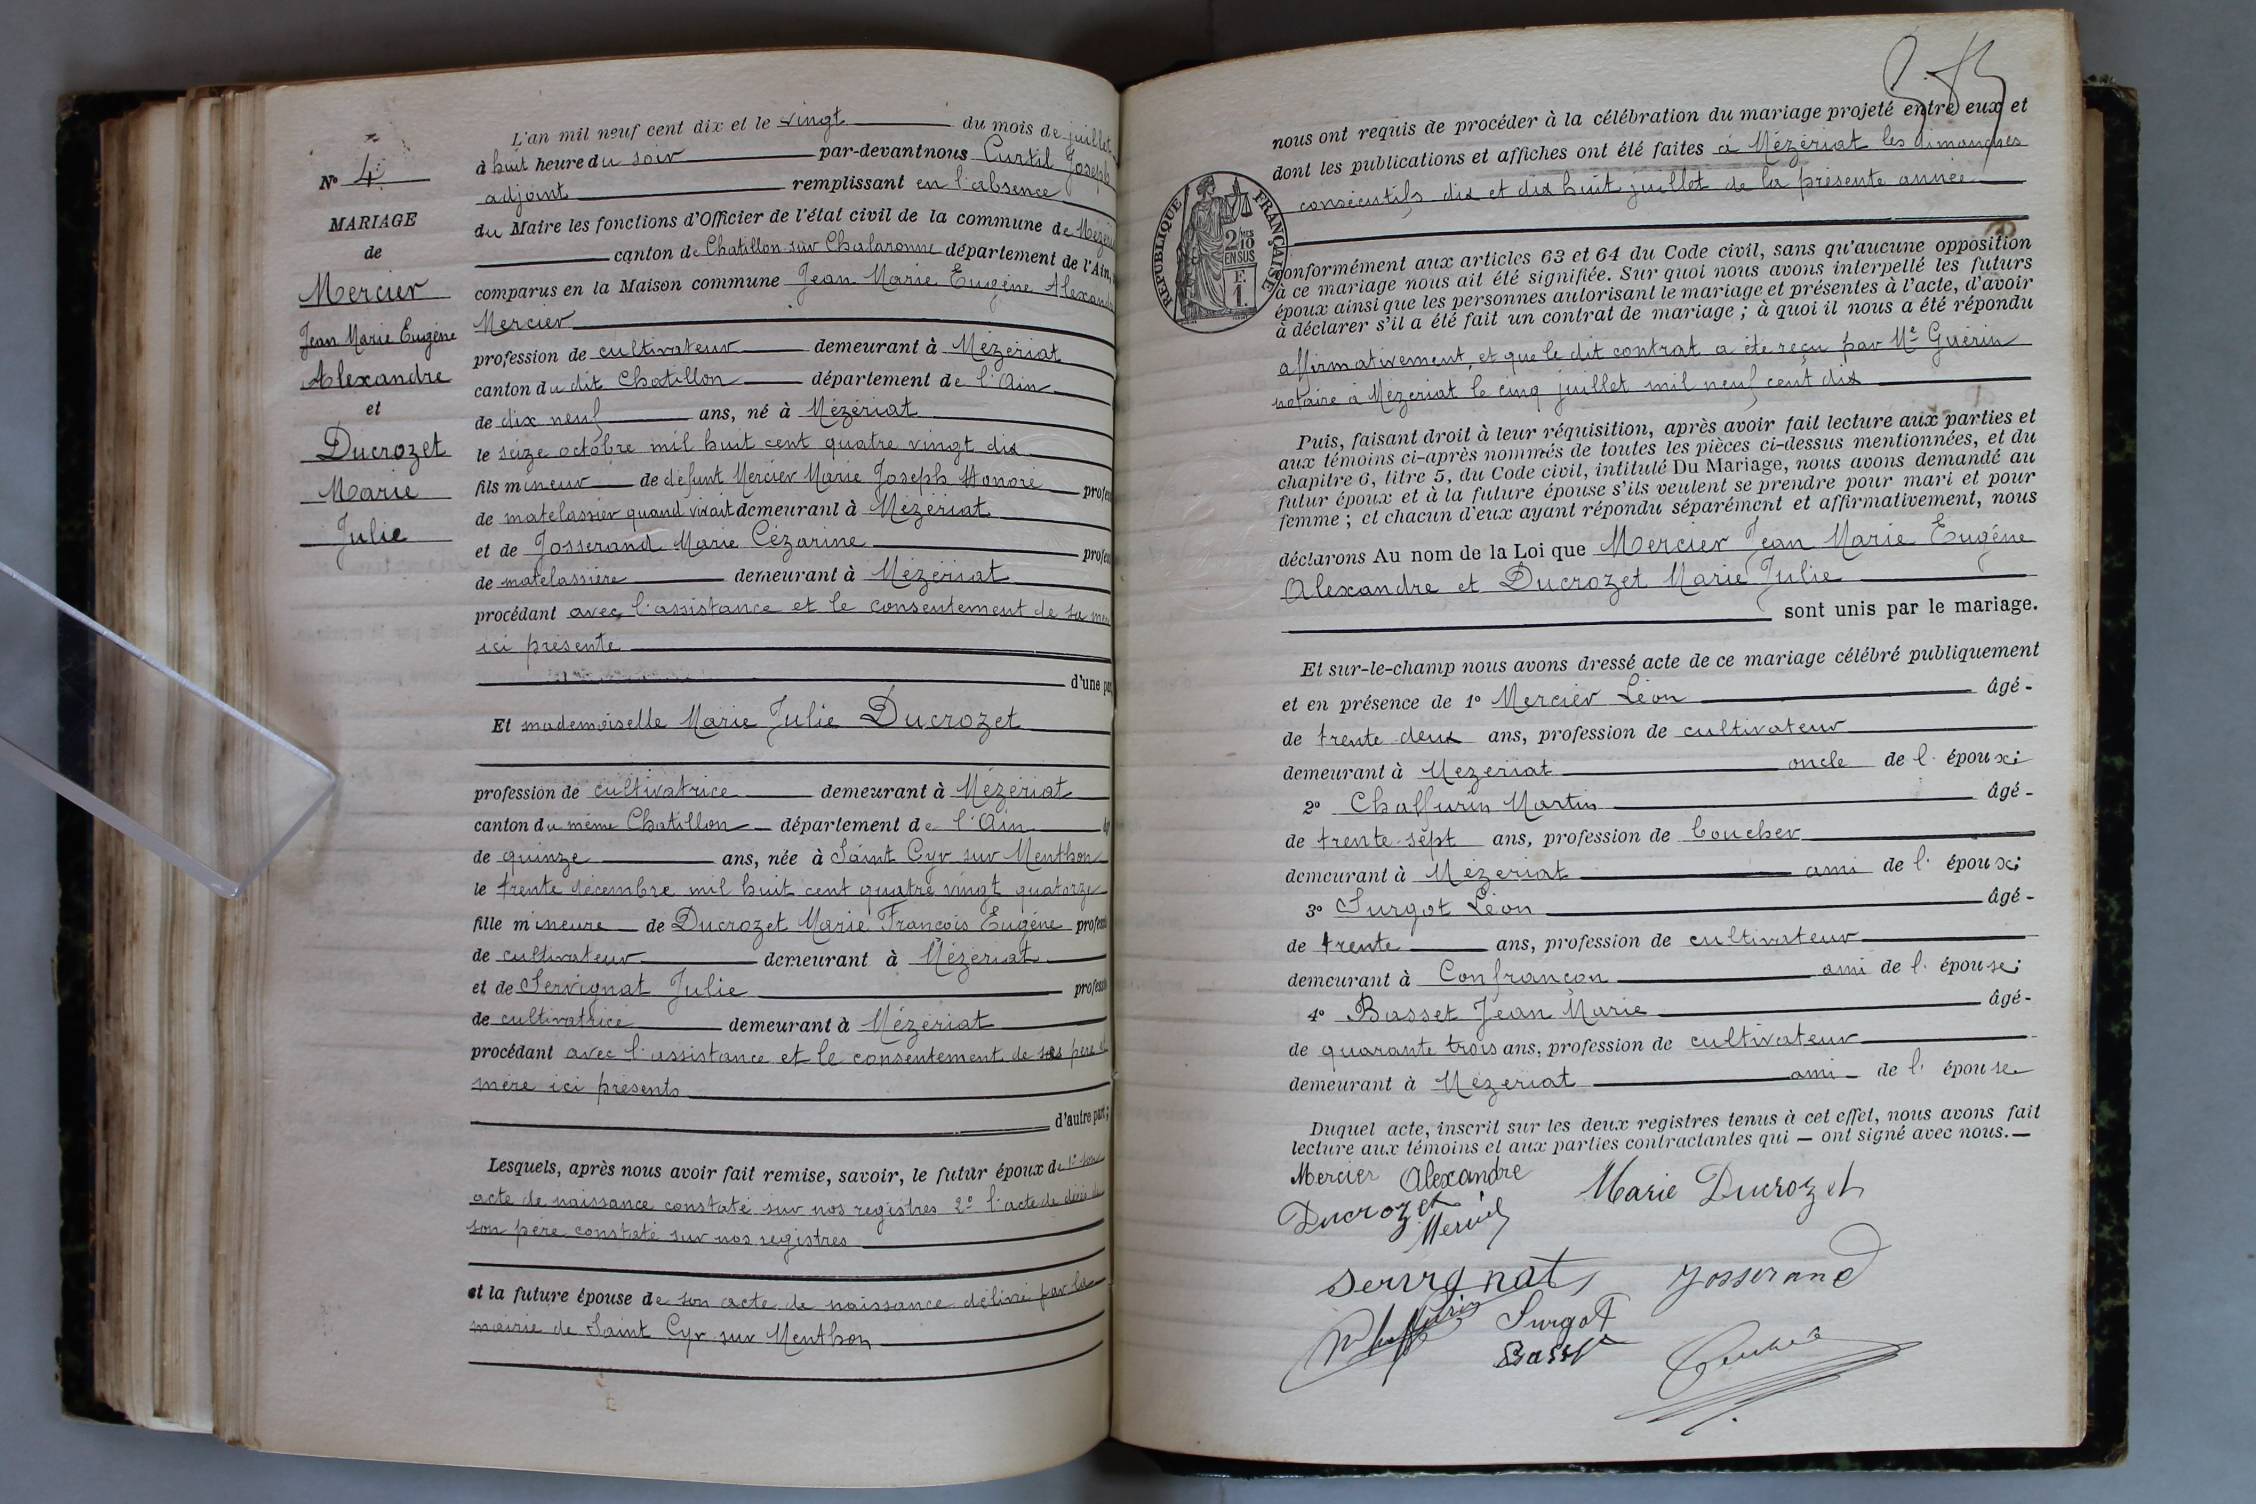 L'an mil neuf cent dix et le vingt du mois de juillet
à huit heure du soir par-devant nous Curtil Joseph
adjoint remplissant en l'absence
du Maire les fonctions d'Officier de l'état civil de la commune de
canton de Chatillon sur Chalaronne département de l'Ain,
comparus en la Maison commune Jean Marie Eugène
Mercier
profession de cultivateur demeurant à Mézériat
canton du dit Chatillon département de l'Ain
de dix neuf ans, né à Mézériat
le seize octobre mil huit cent quatre vingt dix
fils mineur de défunt Mercier Marie Joseph Honoré
de matelassier quand vivait demeurant à Mézériat
et de Josserand Marie Cézarine
de matelassière demeurant à Mézériat
procédant avec l'assistance et le consentement de sa
ici présente
d'une
Et mademoiselle Marie Julie Ducrozet
profession de cultivatrice demeurant à Mézériat
canton du même Chatillon département de l'Ain
de quinze ans, née à Saint Cyr sur Menthon
le trente décembre mil huit cent quatre vingt quatorze
fille mineure de Ducrozet Marie François Eugène
de cultivateur demeurant à Mézériat
et de Servignat Julie
de cultivatrice demeurant à Mézériat
procédant avec l'assistance et le consentement de ses père et
mère ici présents
d'autre part;
Lesquels, après nous avoir fait remise, savoir, le futur époux de 1º son
acte de naissance constaté sur nos registres 2º l'acte de décès de
son père constaté sur nos registres
et la future épouse de son acte de naissance délivré par la
mairie de Saint Cyr sur Menthon
Nº 4
MARIAGE
de
Mercier
Jean Marie Eugène
Alexandre
et
Ducrozet
Marie
Julie
nous ont requis de procéder à la célébration du mariage projeté entre eux et
dont les publications et affiches ont été faites à Mézériat les dimanches
consécutifs dix et dix huit juillet de la présente année
RÉPUBLIQUE FRANÇAISE
2/10
EN SUS
F.
1.
conformément aux articles 63 et 64 du Code civil, sans qu'aucune opposition
à ce mariage nous ait été signifiée. Sur quoi nous avons interpellé les futurs
époux ainsi que les personnes autorisant le mariage et présentes à l'acte, d'avoir
à déclarer s'il a été fait un contrat de mariage; à quoi il nous a été répondu
affirmativement, et que le dit contrat a été reçu par Me Guérin
notaire à Mézériat le cinq juillet mil neuf cent dix
Puis, faisant droit à leur réquisition, après avoir fait lecture aux parties et
aux témoins ci-après nommés de toutes les pièces ci-dessus mentionnées, et du
chapitre 6, titre 5, du Code civil, intitulé Du Mariage, nous avons demandé au
futur époux et à la future épouse s'ils veulent se prendre pour mari et pour
femme; et chacun d'eux ayant répondu séparément et affirmativement, nous
déclarons Au nom de la Loi que Mercier Jean Marie Eugène
Alexandre et Ducrozet Marie Julie
sont unis par le mariage.
Et sur-le-champ nous avons dressé acte de ce mariage célébré publiquement
et en présence de 1º Mercier Léon âgé
de trente deux ans, profession de cultivateur
demeurant à Mézériat oncle de l'époux;
2º Chaffurin Martin âgé
de trente-sept ans, profession de boucher
demeurant à Mézériat ami de l'époux;
3º Surgot Léon âgé
de trente ans, profession de cultivateur
demeurant à Confrançon ami de l'épouse;
4º Basset Jean Marie âgé
de quarante trois ans, profession de cultivateur
demeurant à Mézériat ami de l'épouse
Duquel acte, inscrit sur les deux registres tenus à cet effet, nous avons fait
lecture aux témoins et aux parties contractantes qui — ont signé avec nous.—
Mercier Alexandre Marie Ducrozet
Ducrozet
Servignat Josserand
Surgot